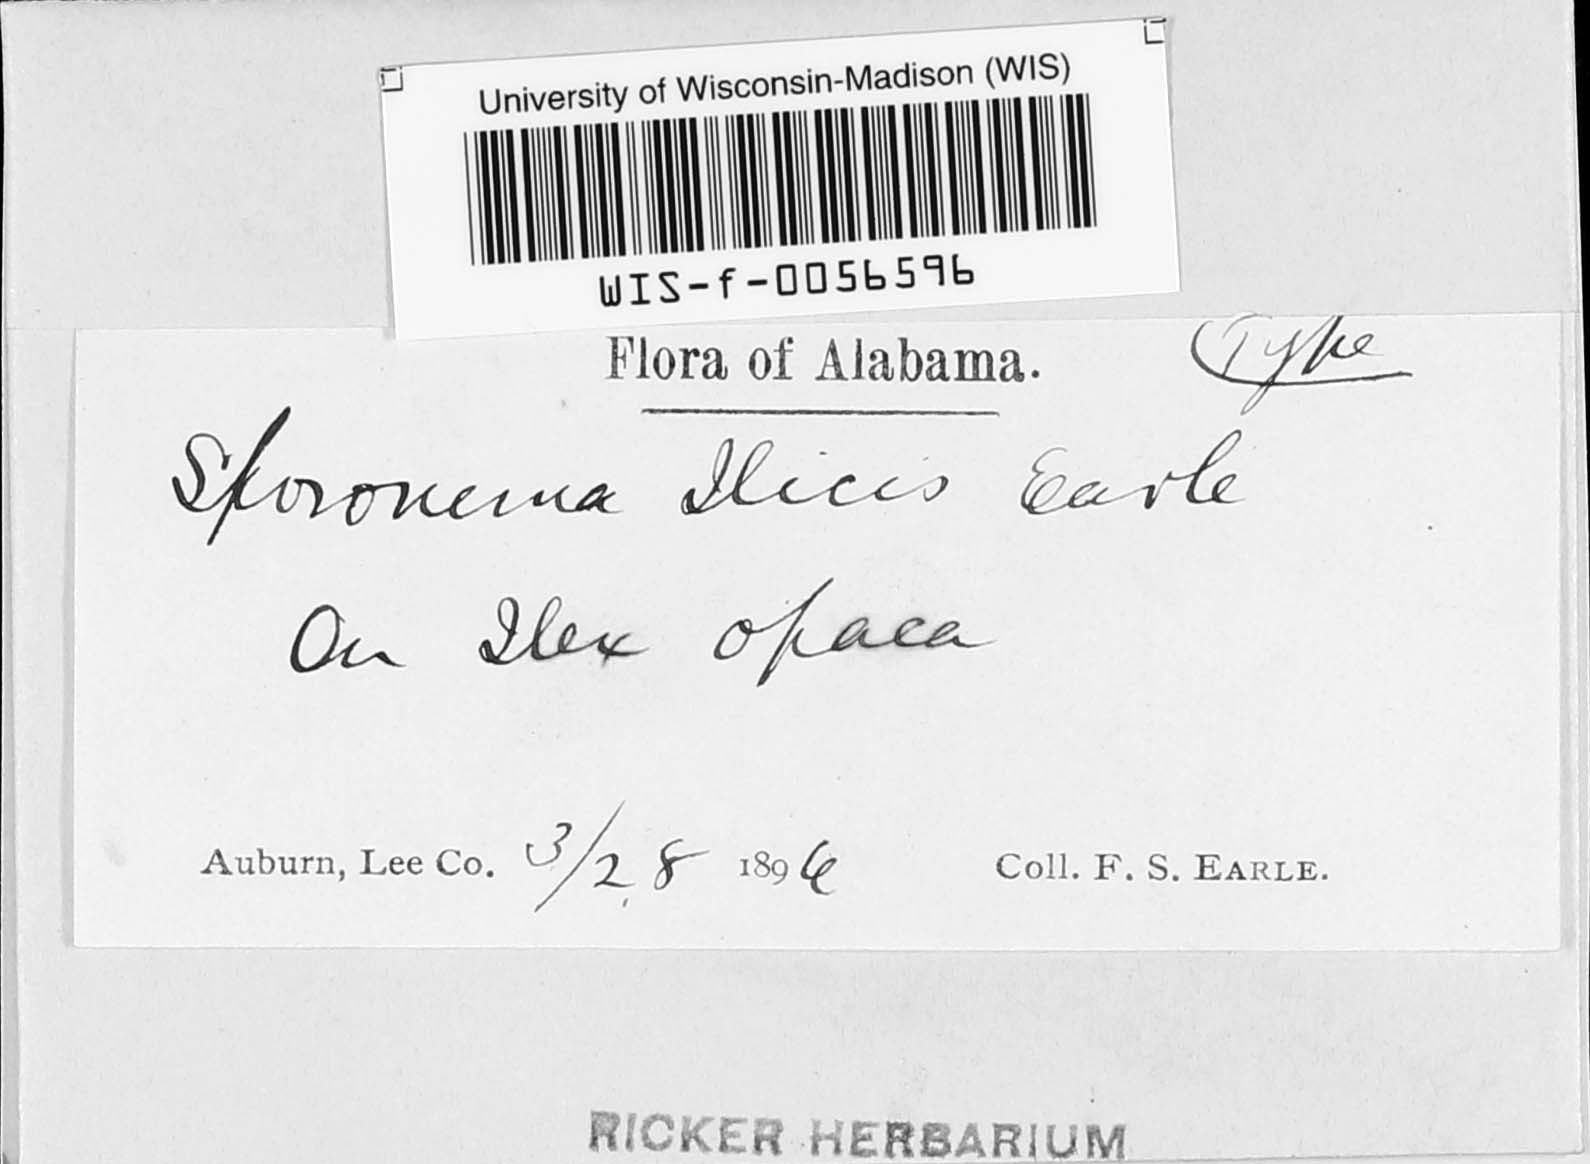 University of Wisconsin-Madison (WIS)
WIS-f-0056596
Flora of Alabama.
Type
Sporonema Ilicis Earle
On Ilex opaca
Auburn, Lee Co. 3/28 1896
Coll. F. S. EARLE.
RICKER HERBARIUM